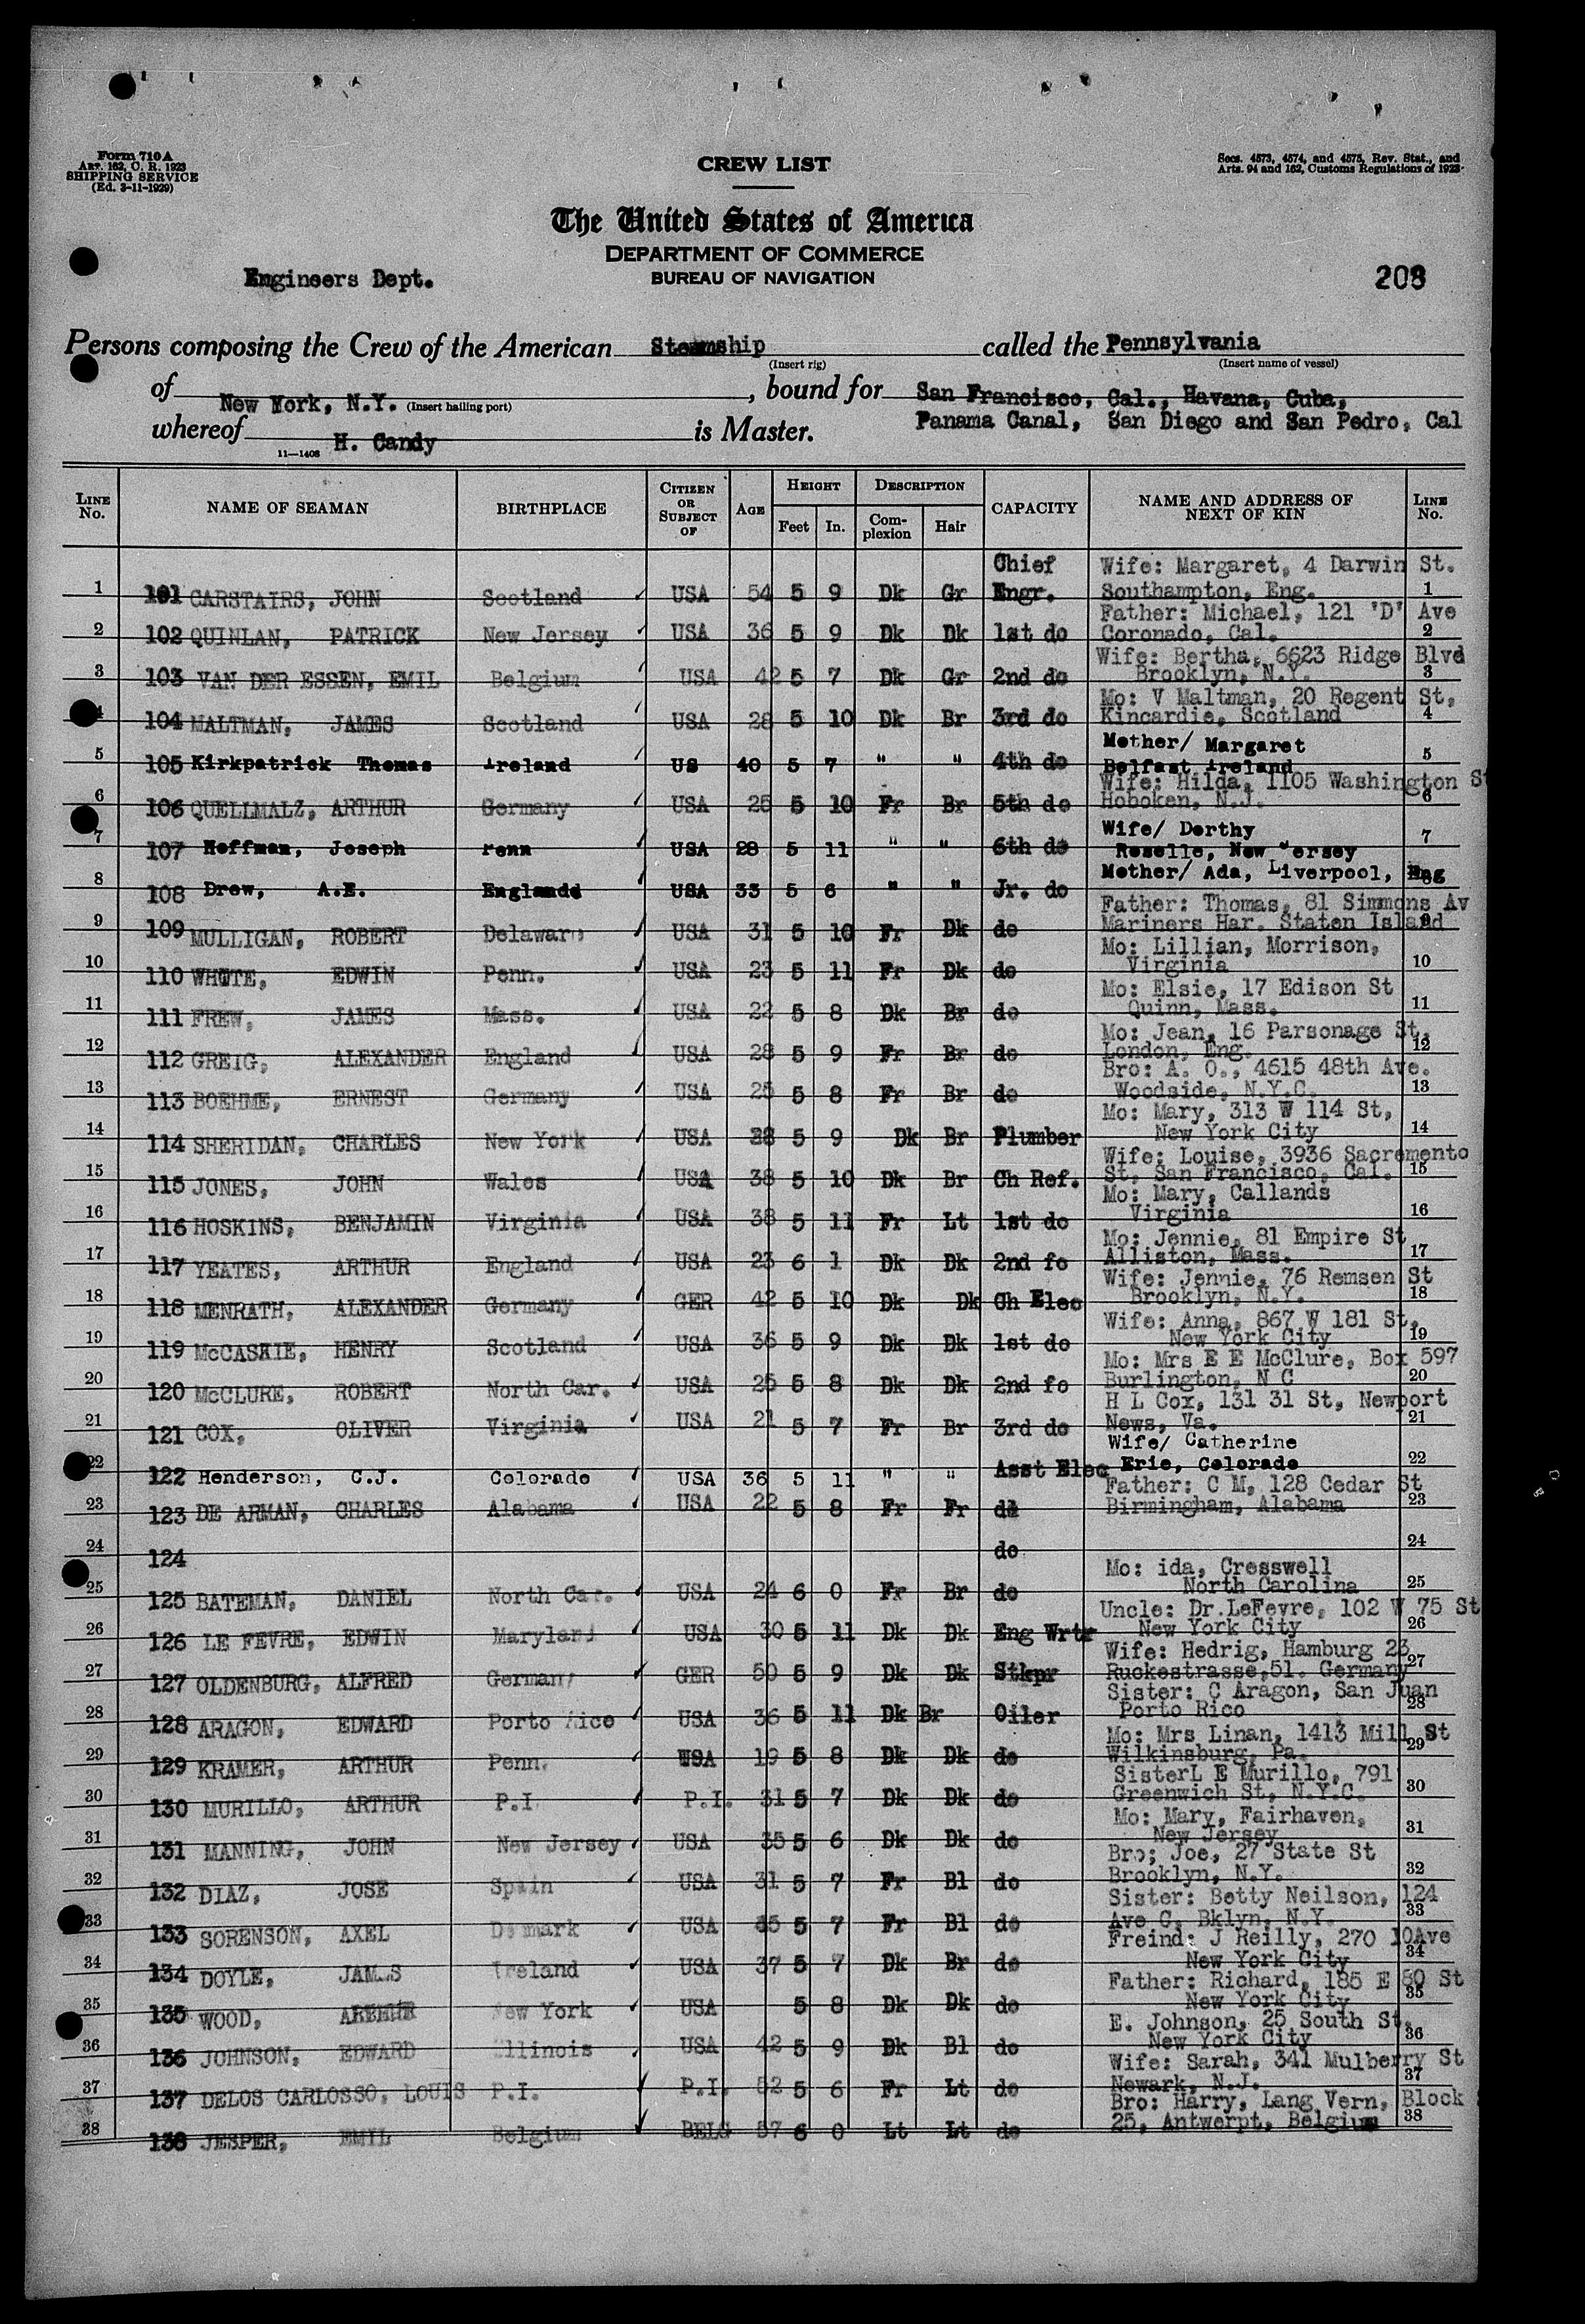 Form 710 A
Art. 162, C. R. 1923
SHIPPING SERVICE
(Ed. 3-11-1929)
CREW LIST
Secs. 4573, 4574, and 4575, Rev. Stat., and
Arts. 94 and 162, Customs Regulations of 1923
The United States of America
DEPARTMENT OF COMMERCE
BUREAU OF NAVIGATION
Engineers Dept.
208
Persons composing the Crew of the American Steamship called the Pennsylvania
(Insert rig) (Insert name of vessel)
of New York, N.Y. (Insert hailing port), bound for San Francisco, Cal., Havana, Cuba,
Panama Canal, San Diego and San Pedro, Cal
whereof H. Candy is Master.
11—1408
LINE No. NAME OF SEAMAN BIRTHPLACE CITIZEN OR SUBJECT OF AGE HEIGHT Feet In. DESCRIPTION Complexion Hair CAPACITY NAME AND ADDRESS OF NEXT OF KIN LINE No.
1 101 CARSTAIRS, JOHN Scotland USA 54 5 9 Dk Gr Chief Engr. Wife: Margaret, 4 Darwin St. Southampton, Eng. 1
2 102 QUINLAN, PATRICK New Jersey USA 36 5 9 Dk Dk 1st do Father: Michael, 121 'D' Ave Coronado, Cal. 2
3 103 VAN DER ESSEN, EMIL Belgium USA 42 5 7 Dk Gr 2nd do Wife: Bertha, 6623 Ridge Blvd Brooklyn, N.Y. 3
4 104 MALTMAN, JAMES Scotland USA 28 5 10 Dk Br 3rd do Mo: V Maltman, 20 Regent St, Kincardie, Scotland 4
5 105 Kirkpatrick Thomas Ireland US 40 5 7 " " 4th do Mother/ Margaret Belfast Ireland 5
6 106 QUELLMALZ, ARTHUR Germany USA 25 5 10 Fr Br 5th do Wife: Hilda, 1105 Washington St Hoboken, N.J. 6
7 107 Hoffman, Joseph Penn USA 28 5 11 " " 6th do Wife/ Dorthy Roselle, New Jersey 7
8 108 Drew, A.E. Englandd USA 33 5 6 " " Jr. do Mother/ Ada, Liverpool, Eng 8
9 109 MULLIGAN, ROBERT Delaware USA 31 5 10 Fr Dk do Father: Thomas, 81 Simmons Av Mariners Har. Staten Island 9
10 110 EDWIN Penn. USA 23 5 11 Fr Dk do Mo: Lillian, Morrison, Virginia 10
11 111 FREW, JAMES Mass. USA 22 5 8 Dk Br do Mo: Elsie, 17 Edison St Quinn, Mass. 11
12 112 GREIG, ALEXANDER England USA 28 5 9 Fr Br do Mo: Jean, 16 Parsonage St, London, Eng. 12
13 113 BOEHME, ERNEST Germany USA 25 5 8 Fr Br do Bro: A. O., 4615 48th Ave. Woodside, N.Y.C. 13
14 114 SHERIDAN, CHARLES New York USA 5 9 Dk Br Plumber Mo: Mary, 313 W 114 St, New York City 14
15 115 JONES, JOHN Wales USA 38 5 10 Dk Br Ch Ref. Wife: Louise, 3936 Sacremento St, San Francisco, Cal. 15
16 116 HOSKINS, BENJAMIN Virginia USA 38 5 11 Fr Lt 1st do Mo: Mary, Callands Virginia 16
17 117 YEATES, ARTHUR England USA 23 6 1 Dk Dk 2nd fo Mo: Jennie, 81 Empire St Alliston, Mass. 17
18 118 MENRATH, ALEXANDER Germany GER 42 5 10 Dk Dk Ch Elec Wife: Jennie, 76 Remsen St Brooklyn, N.Y. 18
19 119 McCASKIE, HENRY Scotland USA 36 5 9 Dk Dk 1st do Wife: Anna, 867 W 181 St, New York City 19
20 120 McCLURE, ROBERT North Car. USA 25 5 8 Dk Dk 2nd fo Mo: Mrs E E McClure, Box 597 Burlington, N C 20
21 121 COX, OLIVER Virginia USA 21 5 7 Fr Br 3rd do H L Cox, 131 31 St, Newport News, Va. 21
22 122 Henderson, C.J. Colorado USA 36 5 11 " " Asst Elec Wife/ Catherine Erie, Colorado 22
23 123 DE ARMAN, CHARLES Alabama USA 22 5 8 Fr Fr Father: C M, 128 Cedar St Birmingham, Alabama 23
24 124 do 24
25 125 BATEMAN, DANIEL North Car. USA 24 6 0 Fr Br do Mo: ida, Cresswell North Carolina 25
26 126 LE FEVRE, EDWIN Maryland USA 30 5 11 Dk Dk Eng Wrtr Uncle: Dr.LeFevre, 102 W 75 St New York City 26
27 127 OLDENBURG, ALFRED Germany GER 50 5 9 Dk Dk Stkpr Wife: Hedrig, Hamburg 23 Ruckestrasse,51. Germany 27
28 128 ARAGON, EDWARD Porto Rico USA 36 5 11 Dk Br Oiler Sister: C Aragon, San Juan Porto Rico 28
29 129 KRAMER, ARTHUR Penn. USA 19 5 8 Dk Dk do Mo: Mrs Linan, 1413 Mill St Wilkinsburg, Pa. 29
30 130 MURILLO, ARTHUR P.I. P.I. 31 5 7 Dk Dk do SisterL E Murillo, 791 Greenwich St, N.Y.C. 30
31 131 MANNING, JOHN New Jersey USA 35 5 6 Dk Dk do Mo: Mary, Fairhaven, New Jersey 31
32 132 DIAZ, JOSE Spain USA 31 5 7 Fr Bl do Bro; Joe, 27 State St Brooklyn, N.Y. 32
33 133 SORENSON, AXEL Denmark USA 5 7 Fr Bl do Sister: Betty Neilson, 124 Ave C, Bklyn, N.Y. 33
34 134 DOYLE, JAMES Ireland USA 37 5 7 Dk Br do Freind: J Reilly, 270 10Ave New York City 34
35 135 WOOD, New York USA 5 8 Dk Dk do Father: Richard, 185 E 80 St New York City 35
36 136 JOHNSON, EDWARD Illinois USA 42 5 9 Dk Bl do E. Johnson, 25 South St, New York City 36
37 137 DELOS CARLOSSO, LOUIS P.I. P.I. 52 5 6 Fr Lt do Wife: Sarah, 341 Mulberry St Newark, N.J. 37
38 138 JESPER, EMIL Belgium BELG 57 6 0 Lt Lt do Bro: Harry, Lang Vern, Block 25, Antwerpt, Belgium 38